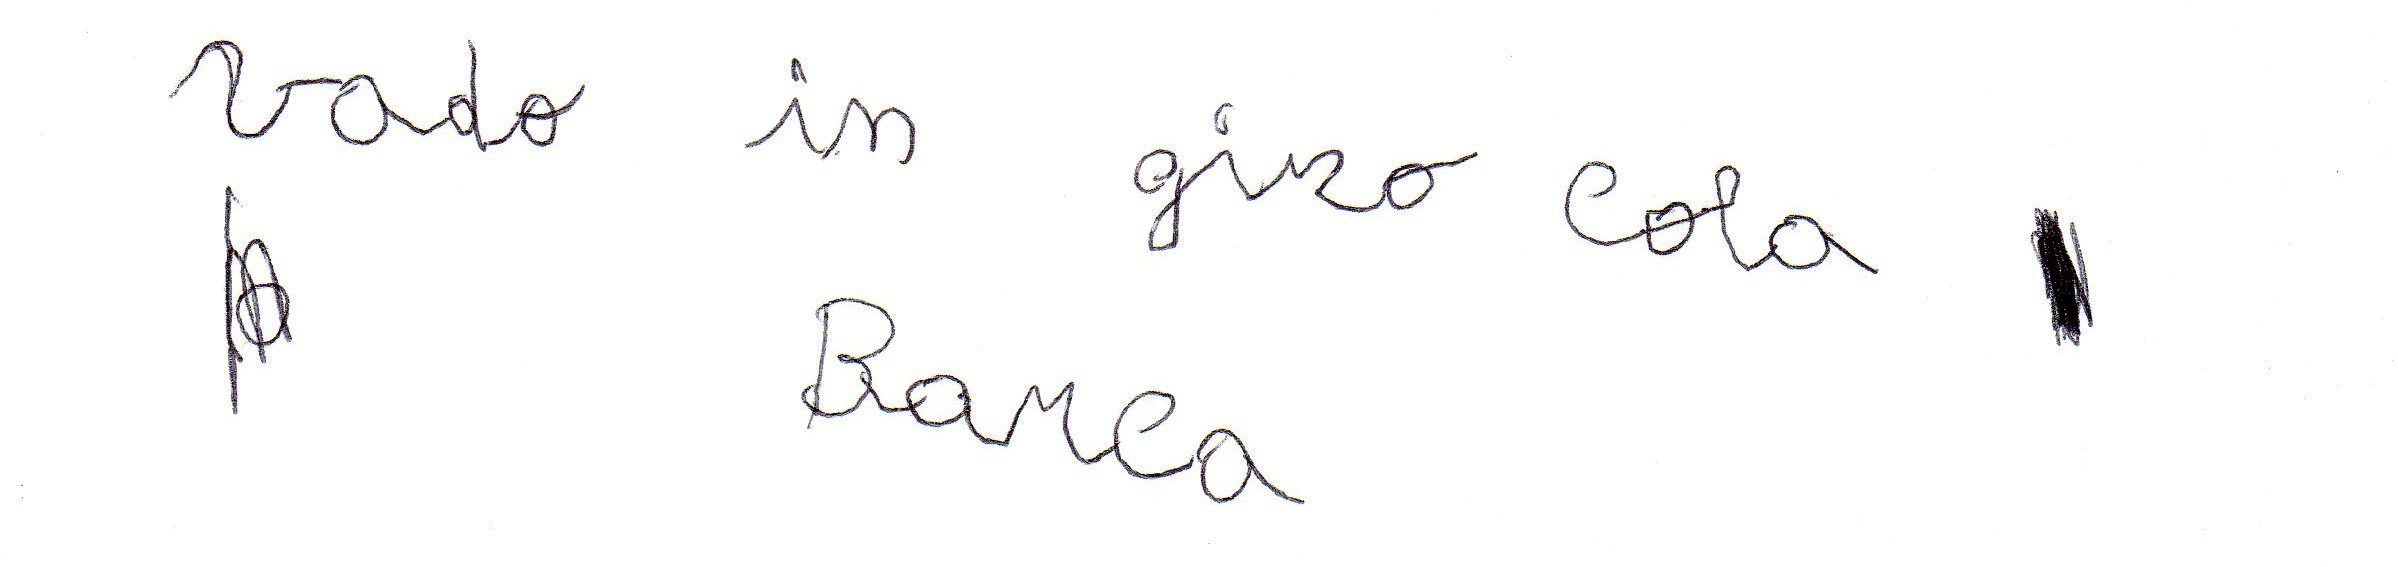 vado in giro cola
Banca